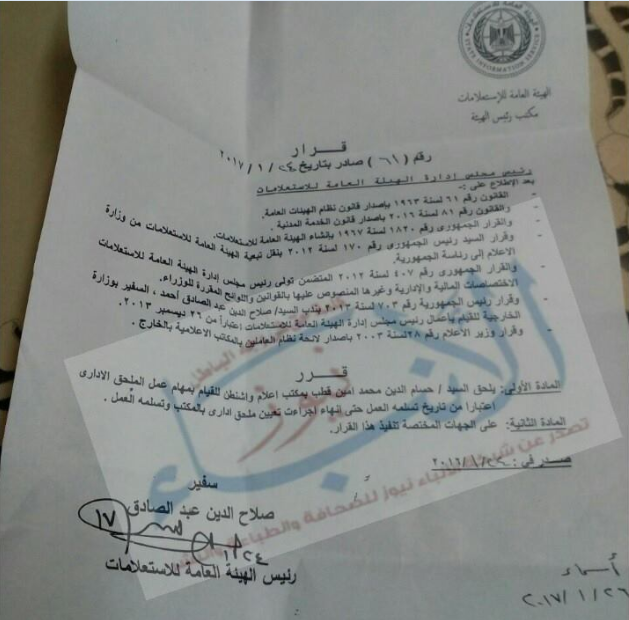 STATE INFORMATION SERVICE
الهيئة العامة للإستعلامات
مكتب رئيس الهيئة
قـرار
رقم (٦١) صادر بتاريخ ٢٠١٧/١/٢٤
رئيس مجلس إدارة الهيئة العامة للاستعلامات
بعد الإطلاع على :-
- القانون رقم ٦١ لسنة ١٩٦٣ بإصدار قانون نظام الهيئات العامة.
- والقانون رقم ٨١ لسنة ٢٠١٦ بإصدار قانون الخدمة المدنية .
- والقرار الجمهورى رقم ١٨٢٠ لسنة ١٩٦٧ بإنشاء الهيئة العامة للإستعلامات.
- وقرار السيد رئيس الجمهورى رقم ١٧٠ لسنة ٢٠١٢ بنقل تبعية الهيئة العامة للاستعلامات من وزارة
الاعلام إلى رئاسة الجمهورية.
- والقرار الجمهورى رقم ٤٠٧ لسنة ٢٠١٢ المتضمن تولى رئيس مجلس إدارة الهيئة العامة للاستعلامات
الاختصاصات المالية والإدارية وغيرها المنصوص عليها بالقوانين واللوائح المقررة للوزراء.
- وقرار رئيس الجمهورية رقم ٧٠٣ لسنة ٢٠١٣ بندب السيد/ صلاح الدين عبد الصادق أحمد ، السفير بوزارة
الخارجية للقيام بأعمال رئيس مجلس إدارة الهيئة العامة للاستعلامات إعتباراً من ٢٦ ديسمبر ٢٠١٣.
- وقرار وزير الاعلام رقم ٢٨ لسنة ٢٠٠٣ باصدار لائحة نظام العاملين بالمكاتب الاعلامية بالخارج .
قـــرر
المادة الأولى: يلحق السيد / حسام الدين محمد امين قطب بمكتب اعلام واشنطن للقيام بمهام عمل الملحق الادارى
اعتبارا من تاريخ تسلمه العمل حتى إنهاء اجراءت تعيين ملحق ادارى بالمكتب وتسلمه العمل .
المادة الثانية: على الجهات المختصة تنفيذ هذا القرار.
الأنباء
نيوز
تصدر عن شركة الأنباء نيوز للصحافة والطباعة
سفير
صلاح الدين عبد الصادق
١٧
١/٢٤
رئيس الهيئة العامة للاستعلامات
أسماء
٢٠١٧/١/٢٦